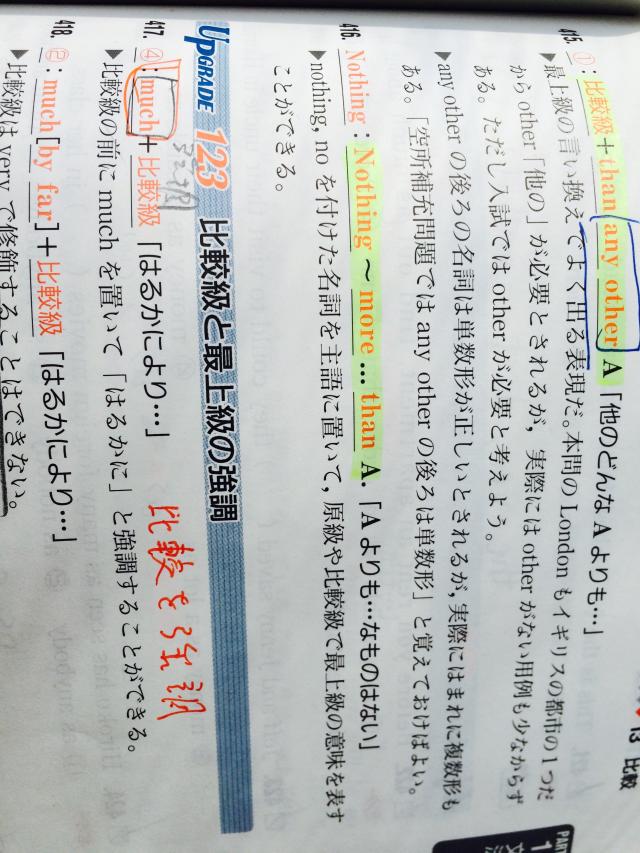 13 比較
PART 1
415. ①：比較級＋than any other A「他のどんな A よりも…」
▶最上級の言い換えでよく出る表現だ。本問の London もイギリスの都市の1つだ
から other「他の」が必要とされるが，実際には other がない用例も少なからず
ある。ただし入試では other が必要と考えよう。
▶any other の後ろの名詞は単数形が正しいとされるが，実際にはまれに複数形も
ある。「空所補充問題では any other の後ろは単数形」と覚えておけばよい。
416. Nothing：Nothing ～ more … than A.「A よりも…なものはない」
▶nothing, no を付けた名詞を主語に置いて，原級や比較級で最上級の意味を表す
ことができる。
UPGRADE 123 比較級と最上級の強調
417. ④：much＋比較級「はるかにより…」
比較を強調
▶比較級の前に much を置いて「はるかに」と強調することができる。
418. ②：much [by far]＋比較級「はるかにより…」
▶比較級は very で修飾することはできない。